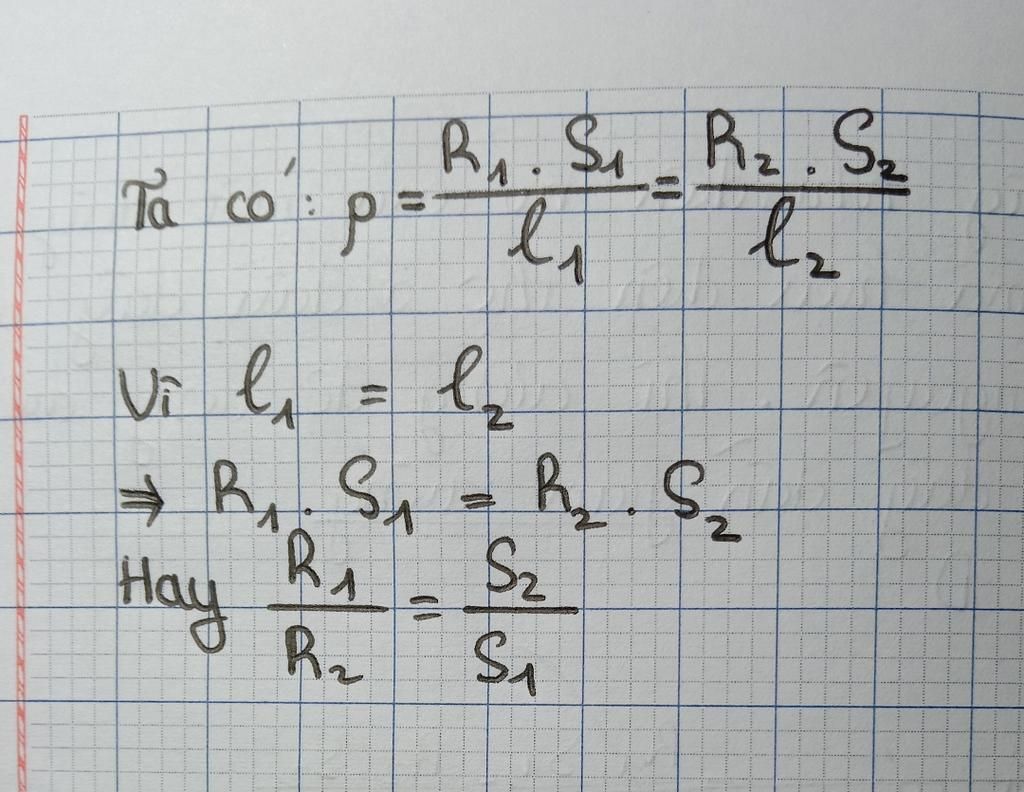 Ta có: ρ = R₁ . S₁ / l₁ = R₂ . S₂ / l₂
Vì l₁ = l₂
⇒ R₁ . S₁ = R₂ . S₂
Hay R₁ / R₂ = S₂ / S₁